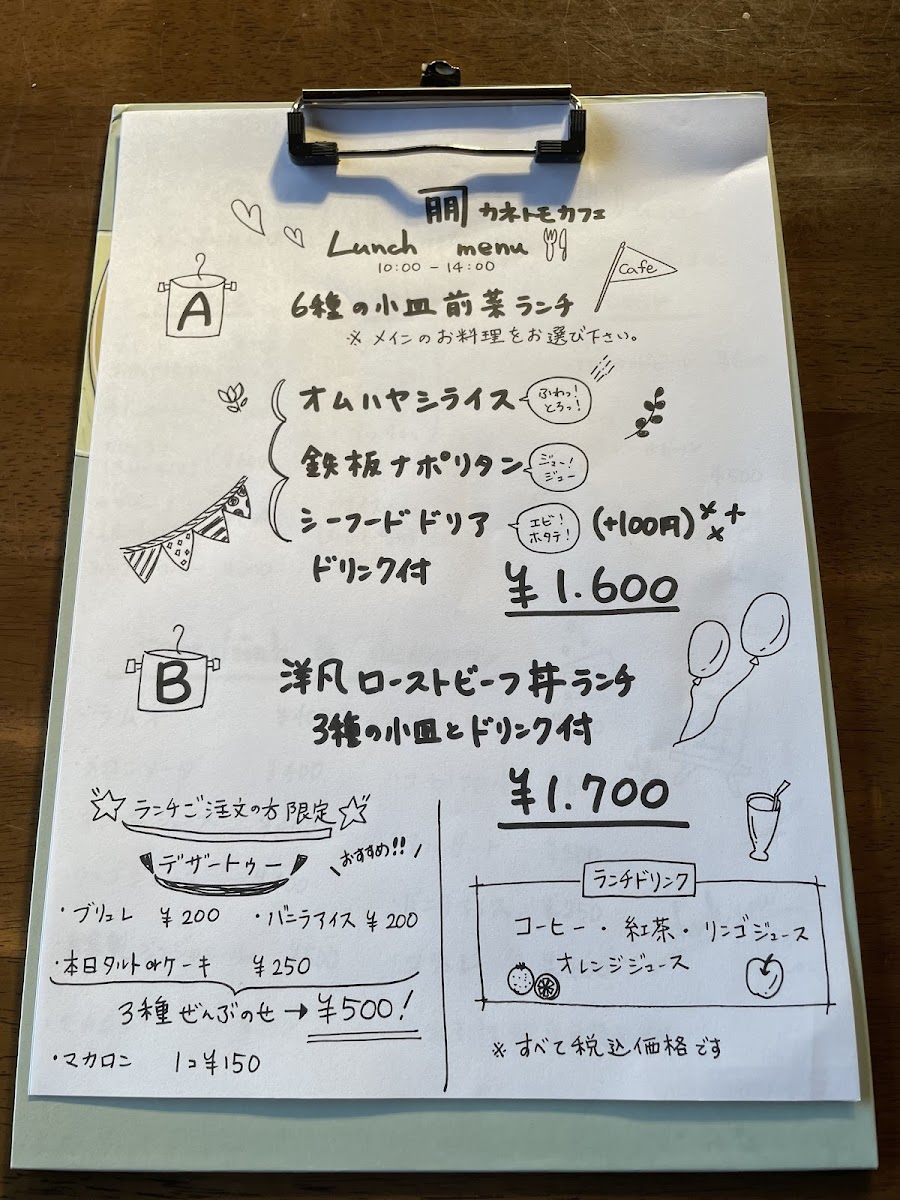 朋 カネトモカフェ
Lunch menu
10:00 - 14:00
Cafe
A
6種の小皿前菜ランチ
※メインのお料理をお選び下さい。
オムハヤシライス
ふわっ!
とろっ!
鉄板ナポリタン
ジュー!
ジュー
シーフードドリア
エビ!
ホタテ!
(+100円)
ドリンク付
¥1.600
B
洋凡ローストビーフ丼ランチ
3種の小皿とドリンク付
¥1.700
ランチご注文の方限定
デザートゥー
おすすめ!!
・ブリュレ ¥200
・バニラアイス ¥200
・本日タルトorケーキ ¥250
3種ぜんぶのせ→¥500!
・マカロン 1コ¥150
ランチドリンク
コーヒー・紅茶・リンゴジュース
オレンジジュース
※すべて税込価格です